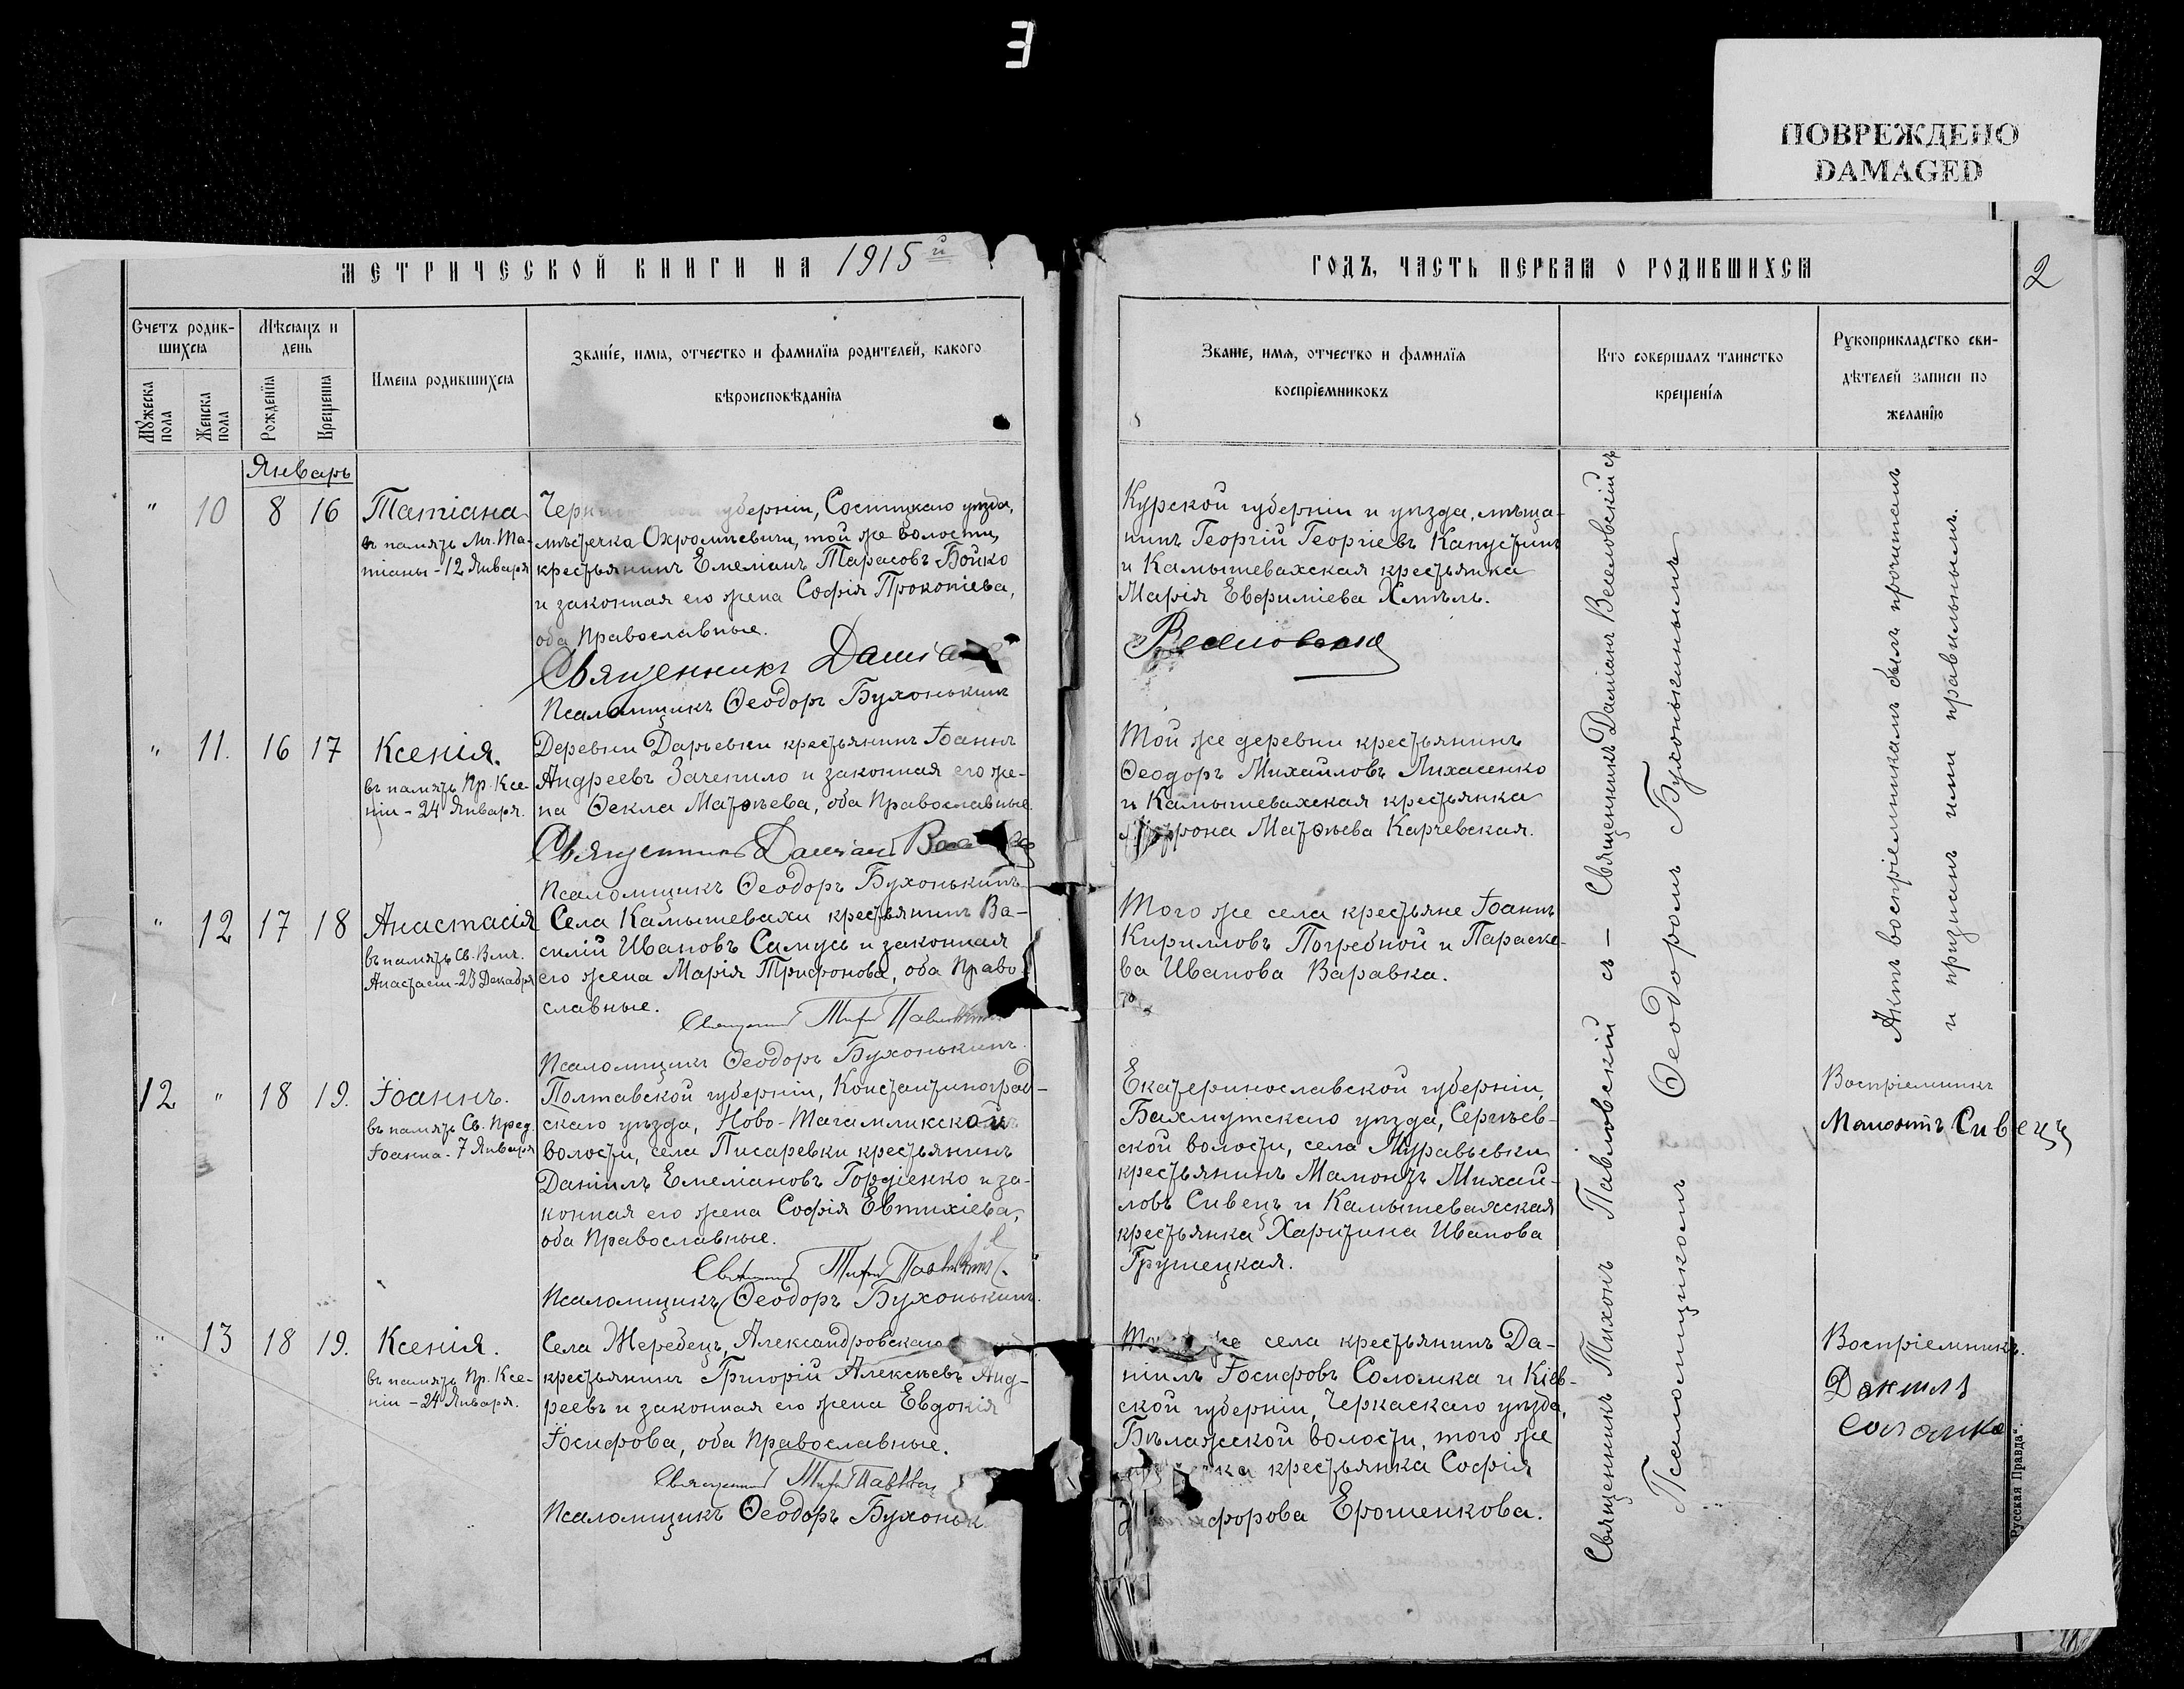 ПОВРЕЖДЕНО
DAMAGED
МЕТРИЧЕСКОЙ КНИГИ НА 1915й
Счетъ родив-
шихся
Мѣсяцъ и
день
Имена родившихся
Званіе, имя, отчество и фамилія родителей, какого
вѣроисповѣданія
Мужеска
пола
Женска
пола
Рожденія
Крещенія
Январь
" 10 8 16 Татіана
въ память Мч. Та-
тіаны - 12 Января
губерніи, Сосницкаго уѣзда,
мѣстечка Охромѣевичи, той же волости,
крестьянинъ Емеліанъ Тарасовъ Бойко
и законная его жена Софія Прокопіева,
оба Православные.
Священникъ Даміанъ
Псаломщикъ Ѳеодоръ Бухонькинъ
" 11. 16 17 Ксенія.
въ память Пр. Ксе-
ніи - 24 Января.
Деревни Дарьевки крестьянинъ Іоаннъ
Андреевъ Зачепило и законная его же-
на Ѳекла Матѳѣева, оба Православные.
Священникъ Даміанъ
Псаломщикъ Ѳеодоръ Бухонькинъ
" 12 17 18 Анастасія
въ память Св. Влмч.
Анастасіи - 22 Декабря
Села Камышевахи крестьянинъ Ва-
силій Ивановъ Самусь и законная
его жена Марія Трифонова, оба Право-
славные.
Священникъ Тихонъ Павловскій
Псаломщикъ Ѳеодоръ Бухонькинъ.
12 " 18 19. Іоаннъ.
въ память Св. Пред.
Іоанна - 7 Января
Полтавской губерніи, Константиноград-
скаго уѣзда, Ново-Тагамликской
волости, села Писаревки крестьянинъ
Даніилъ Емеліановъ Гордіенко и за-
конная его жена Софія Евтихіева,
оба Православные.
Священникъ Тихонъ Павловскій.
Псаломщикъ Ѳеодоръ Бухонькинъ.
" 13 18 19. Ксенія.
въ память Пр. Ксе-
ніи - 24 Января.
Села Жеребецъ, Александровскаго
крестьянинъ Григорій Алексѣевъ Анд-
реевъ и законная его жена Евдокія
Іосифова, оба Православные.
Священникъ Тихонъ
Псаломщикъ Ѳеодоръ Бухоньк
ГОДЪ, ЧАСТЬ ПЕРВАЯ О РОДИВШИХСЯ
2
Званіе, имя, отчество и фамилія
воспріемниковъ
Кто совершалъ таинство
крещенія
Рукоприкладство сви-
дѣтелей записи по
желанію
Курской губерніи и уѣзда, мѣща-
нинъ Георгій Георгіевъ Капустинъ
и Камышевахская крестьянка
Марія Евфиміева Хмѣль.
Веселовскій
Той же деревни крестьянинъ
Ѳеодоръ Михайловъ Лихасенко
и Камышевахская крестьянка
Матѳѣева Карчевская.
Того же села крестьяне Іоаннъ
Кирилловъ Погребной и Параске-
ва Иванова Варавка.
Екатеринославской губерніи,
Бахмутскаго уѣзда, Сергѣев-
ской волости, села Муравьевки
крестьянинъ Мамонтъ Михай-
ловъ Сивецъ и Камышевахская
крестьянка Харитина Иванова
Грушецкая.
же села крестьянинъ Да-
ніилъ Іосифовъ Соломка и Кіев-
ской губерніи, Черкаскаго уѣзда,
Бѣлажской волости, того же
крестьянка Софія
форова Ерошенкова.
Священникъ Тихонъ Павловскій съ - Священникъ Даміанъ Веселовскій съ
Псаломщикомъ Ѳеодоромъ Бухонькинымъ
Актъ воспріемникамъ былъ прочитанъ
и признанъ ими правильнымъ.
Воспріемникъ
Мамонтъ Сивецъ
Воспріемникъ.
Данилъ
Соломка
Русская Правда".